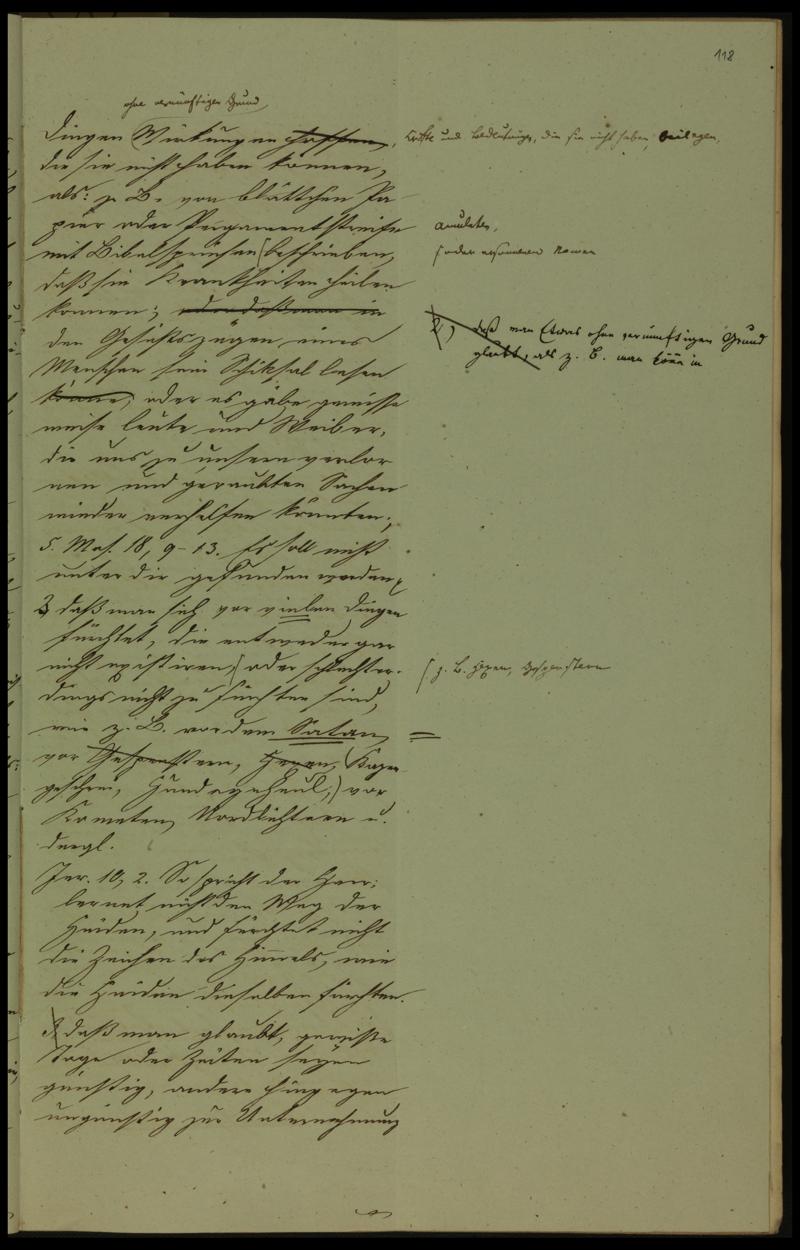 118
ohne vernünftigen Grund
Dingen Wirkungen hoffen, Kräfte und Bedeutungen, die sie nicht haben, beilegen,
die sie nicht haben können,
als: z. B. von blättchen Pa-
pier oder Pergamentstreife Amulete,
mit Bibelsprüchen beschrieben, oder Namen
daß sie Krankheiten heilen
können; oder daß man in
2) daß man Etwas ohne vernünftigen Grund
den Gesichtszügen eines
glaubt, als z. B. man könne in
Menschen sein Schiksal lesen
könne; oder es gäbe gewisse
weise leute und Weiber,
die uns zu unsern verlor
nen und geraubten Sachen
wieder verhelfen könnten;
5. Mos. 18, 9-13. Es soll nicht
unter dir gefunden werden
3 daß man sich vor vielen Dingen
fürchtet, die entweder gar
nicht existiren, oder schlechter- z. B. Hexen, Gespenstern
dings nicht zu fürchten sind,
wie z. B. vor dem Satan,
vor Gespenstern, Hexen, Kazen
geschrei, Hundegeheul, vor
Kometen, Nordlichtern u.
dergl.
Jer. 10, 2. So spricht der Herr:
lernet nicht den Weg der
Heiden, und fürchtet nicht
die Zeichen des Himels, wie
die Heiden dieselben fürchten.
daß man glaubt, gewisse
Tage oder Zeiten seyen
günstig, andere hingegen
ungünstig zur Unternehmung